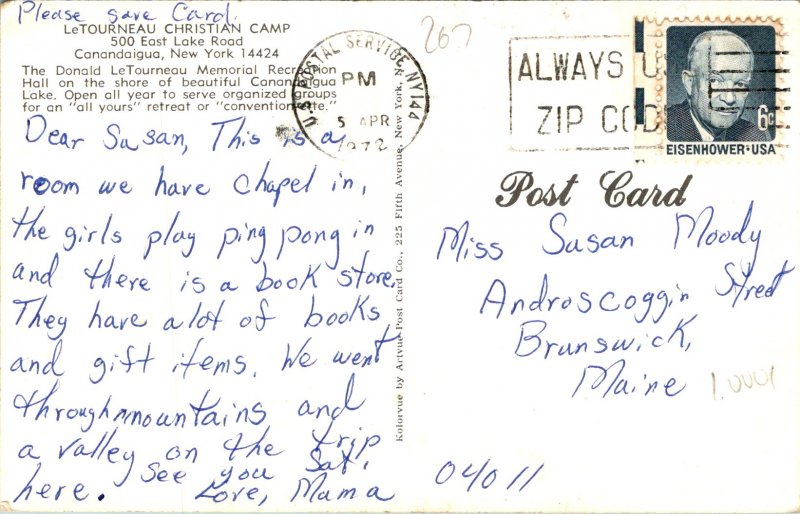 Please save Card.
LeTOURNEAU CHRISTIAN CAMP
500 East Lake Road
Canandaigua, New York 14424
The Donald LeTourneau Memorial Recreation
Hall on the shore of beautiful Canandaigua
Lake. Open all year to serve organized groups
for an "all yours" retreat or "convention ette."
Dear Susan, This is a
room we have chapel in,
the girls play ping pong in
and there is a book store.
They have a lot of books
and gift items. We went
through mountains and
a valley on the trip
here. See you Sat.
Love, Mama
Kolorvue by Artvue Post Card Co., 225 Fifth Avenue, New York, N.
267
U.S. POSTAL SERVICE NY 144
PM
5 APR
1972
ALWAYS U
ZIP COD
6c
EISENHOWER·USA
Post Card
Miss Susan Moody
Androscoggin Street
Brunswick,
Maine
04011